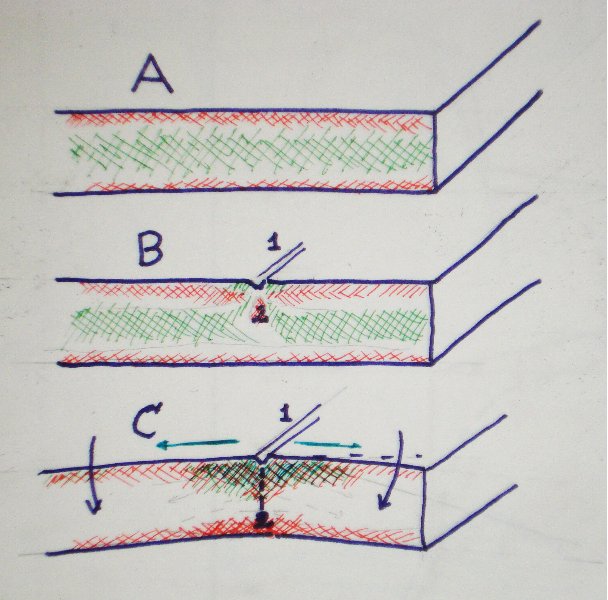 A
B
1
2
C
1
2